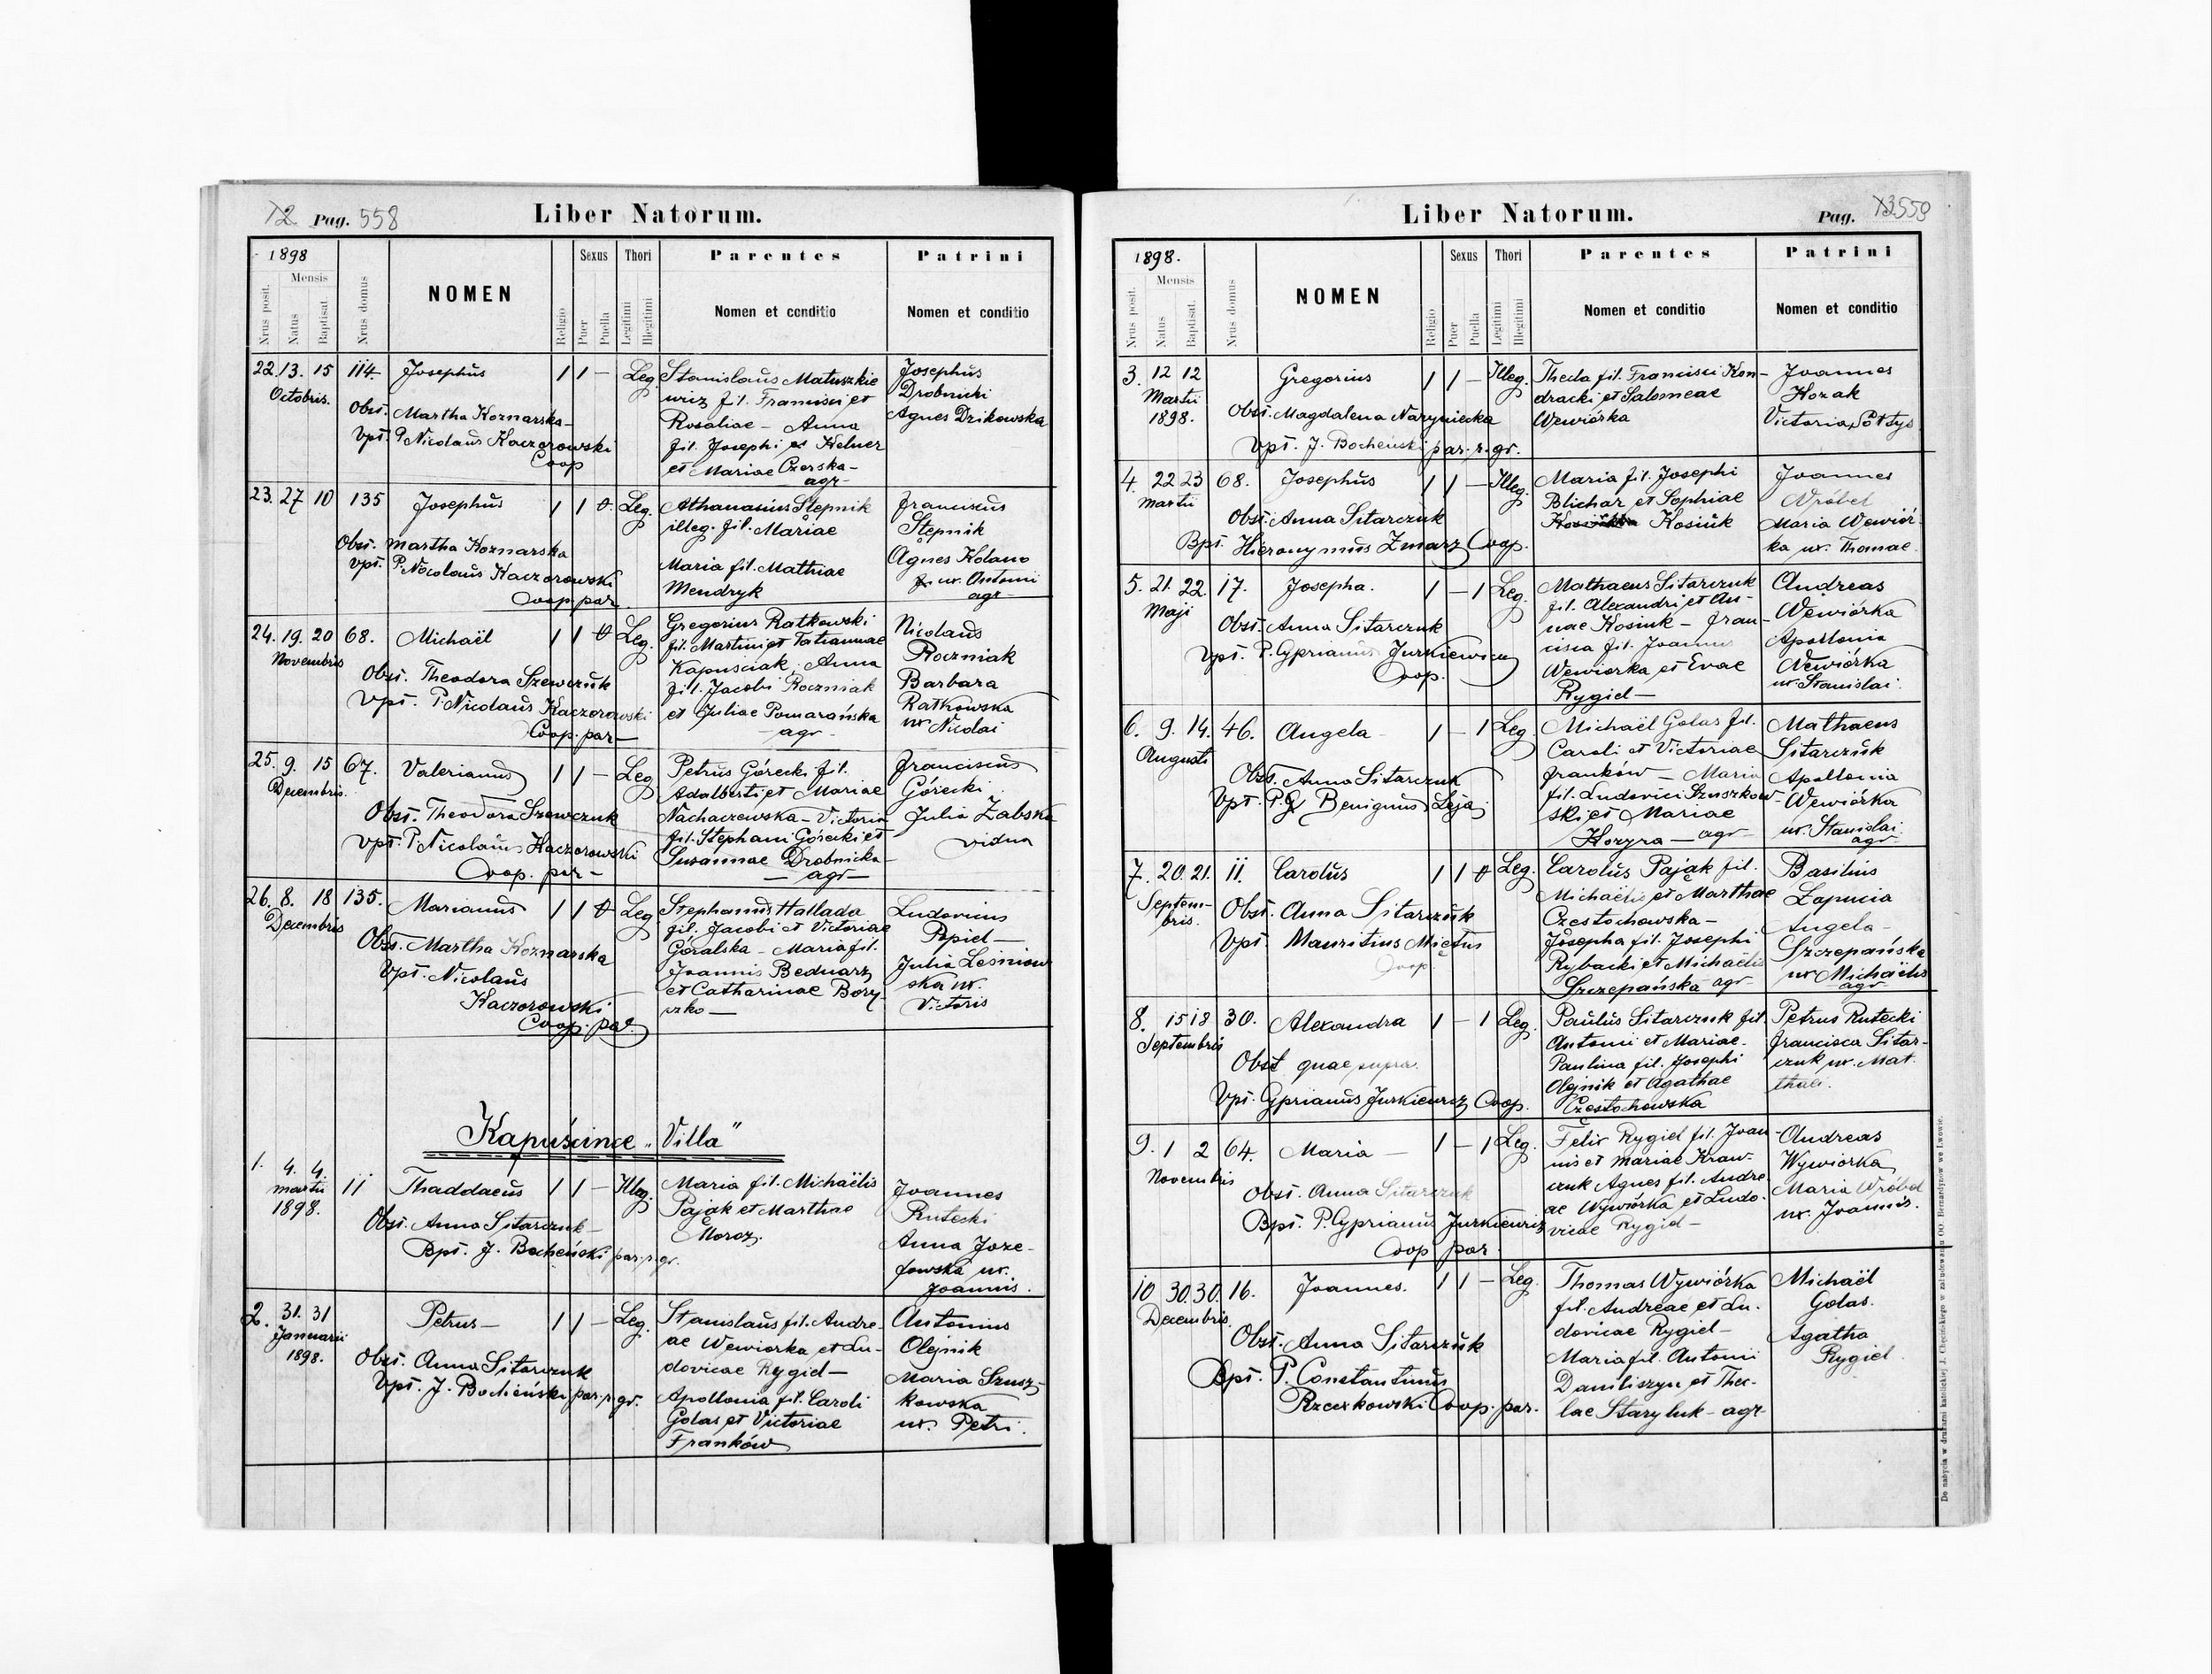 72 Pag. 558
Liber Natorum.
1898
Mensis
Nrus posit.
Natus
Baptisat.
Nrus domus
NOMEN
Religio
Sexus
Puer
Puella
Thori
Legitimi
Illegitimi
Parentes
Nomen et conditio
Patrini
Nomen et conditio
22. 13. 15 114. Josephus 1 1 – Leg.
Octobris.
Obst. Martha Koznarska –
Bpt. P. Nicolaus Kaczorowski
Coop
Stanislaus Matuszkie
wicz fil. Francisci et
Rosaliae – Anna
fil. Josephi et Kelner
et Mariae Czerska –
agr –
Josephus
Drobnicki
Agnes Dzikowska
23. 27 10 135 Josephus 1 1 0 Leg.
Obst. Martha Koznarska
Bpt. P. Nicolaus Kaczorowski
Coop. par.
Athanasius Stepnik
illeg. fil. Mariae
Maria fil. Mathiae
Mendryk
Franciscus
Stepnik
Agnes Kolano
ux. Antonii
agr –
24. 19. 20 68. Michaël 1 1 0 Leg.
Novembris
Obst. Theodora Szewczuk
Bpt. P. Nicolaus Kaczorowski
Coop. par –
Gregorius Ratkowski
fil. Martini et Tatiannae
Kapuściak, Anna
fil. Jacobi Roczniak
et Juliae Pomarańska
– agr –
Nicolaus
Roczniak
Barbara
Ratkowska
ux Nicolai
25. 9. 15 67. Valerianus 1 1 – Leg
Decembris.
Obst. Theodora Szewczuk
Bpt. P. Nicolaus Kaczorowski
Coop. par –
Petrus Górecki fil.
Adalberti et Mariae
Nachaczewska – Victoria
fil. Stephani Górecki et
Susannae Drobnicka –
– agr –
Franciscus
Górecki
Julia Zabska
vidua
26. 8. 18 135. Marianus 1 1 0 Leg
Decembris
Obst. Martha Koznarska
Bpt. Nicolaus
Kaczorowski
Coop. par.
Stephanus Hallada
fil. Jacobi et Victoriae
Góralska – Maria fil.
Joannis Bednarz
et Catharinae Bory-
szko –
Ludovicus
Popiel –
Julia Leśniow
ska ux.
Victoris
Kapuścińce „Villa"
1. 4. 4. 11 Thaddaeus 1 1 – Illeg.
Martii
1898.
Obst. Anna Sitarczuk –
Bpt. J. Bocheński par. r. gr.
Maria fil. Michaëlis
Pająk et Marthae
Moroz.
Joannes
Rutecki
Anna Joze-
fowska ux.
Joannis.
2. 31. 31 Petrus – 1 1 – Leg.
Januarii
1898.
Obst. Anna Sitarczuk
Bpt. J. Bocheński par. r. gr.
Stanislaus fil. Andre-
ae Wewiorka et Lu-
dovicae Rygiel –
Apollonia fil. Caroli
Golas et Victoriae
Franków
Antonius
Olejnik
Maria Szusz-
kowska
ux. Petri.
Liber Natorum.
Pag. 73 559
1898.
Mensis
Nrus posit.
Natus
Baptisat.
Nrus domus
NOMEN
Religio
Sexus
Puer
Puella
Thori
Legitimi
Illegitimi
Parentes
Nomen et conditio
Patrini
Nomen et conditio
3. 12 12 Gregorius 1 1 – Illeg.
Martii
1898.
Obst. Magdalena Naryniecka
Bpt. J. Bocheński par. r. gr.
Thecla fil. Francisci Kon-
dracki et Salomeae
Wewiórka
Joannes
Kozak
Victoria Sołtys
4. 22 23 68. Josephus 1 1 – Illeg.
Martii
Obst. Anna Sitarczuk
Bpt. Hieronymus Zmarz Coop.
Maria fil. Josephi
Blichar et Sophiae
Kosiuk
Joannes
Wróbel
Maria Wewiór-
ka ux. Thomae.
5. 21. 22. 17. Josepha. 1 – 1 Leg.
Maji
Obst. Anna Sitarczuk
Bpt. P. Cyprianus Jurkiewicz
Coop.
Mathaeus Sitarczuk
fil. Alexandri et An-
nae Kosiuk – Fran-
cisca fil. Joannis
Wewiorka et Evae
Rygiel –
Andreas
Wewiórka
Apollonia
Wewiórka
ux. Stanislai.
6. 9. 14. 46. Angela – 1 – 1 Leg
Augusti
Obst. Anna Sitarczuk
Bpt. P. Benignus Leja
Michaël Golas fil.
Caroli et Victoriae
Franków – Maria
fil. Ludovici Szuszkow-
ski et Mariae
Kozyra – agr –
Mathaeus
Sitarczuk
Apollonia
Wewiórka
ux. Stanislai.
agr –
7. 20. 21. 11. Carolus 1 1 0 Leg.
Septem-
bris.
Obst. Anna Sitarczuk
Bpt. Mauritius Miętus
Coop.
Carolus Pająk fil.
Michaëlis et Marthae
Czestochowska –
Josepha fil. Josephi
Rybacki et Michaëlis
Szczepańska agr –
Basilius
Łapucia
Angela –
Szczepańska
ux Michaëlis
agr
8. 15 18 30. Alexandra 1 – 1 Leg.
Septembris
Obst quae supra.
Bpt. Cyprianus Jurkiewicz Coop.
Paulus Sitarczuk fil.
Antonii et Mariae –
Paulina fil. Josephi
Olejnik et Agathae
Czestochowska
Petrus Rutecki
Francisca Sitar-
czuk ux. Mat-
thaei.
9. 1 2 64. Maria – 1 – 1 Leg.
Novembris
Obst. Anna Sitarczuk
Bpt. P. Cyprianus Jurkiewicz
Coop par.
Felix Rygiel fil. Joan-
nis et Mariae Kraw-
czuk Agnes fil. Andre-
ae Wywiórka et Ludo-
vicae Rygiel –
Andreas
Wywiorka
Maria Wróbel
ux. Joannis.
10 30. 30. 16. Joannes. 1 1 – Leg.
Decembris.
Obst. Anna Sitarczuk
Bpt. P. Constantinus
Rzeczkowski Coop. par.
Thomas Wywiórka
fil. Andreae et Lu-
dovicae Rygiel –
Maria fil. Antonii
Daniliszyn et Thec-
lae Staryluk – agr –
Michaël
Golas.
Agatha
Rygiel.
Do nabycia w drukarni katolickiej J. Chęcińskiego w zabudowaniu OO. Bernardynów we Lwowie.